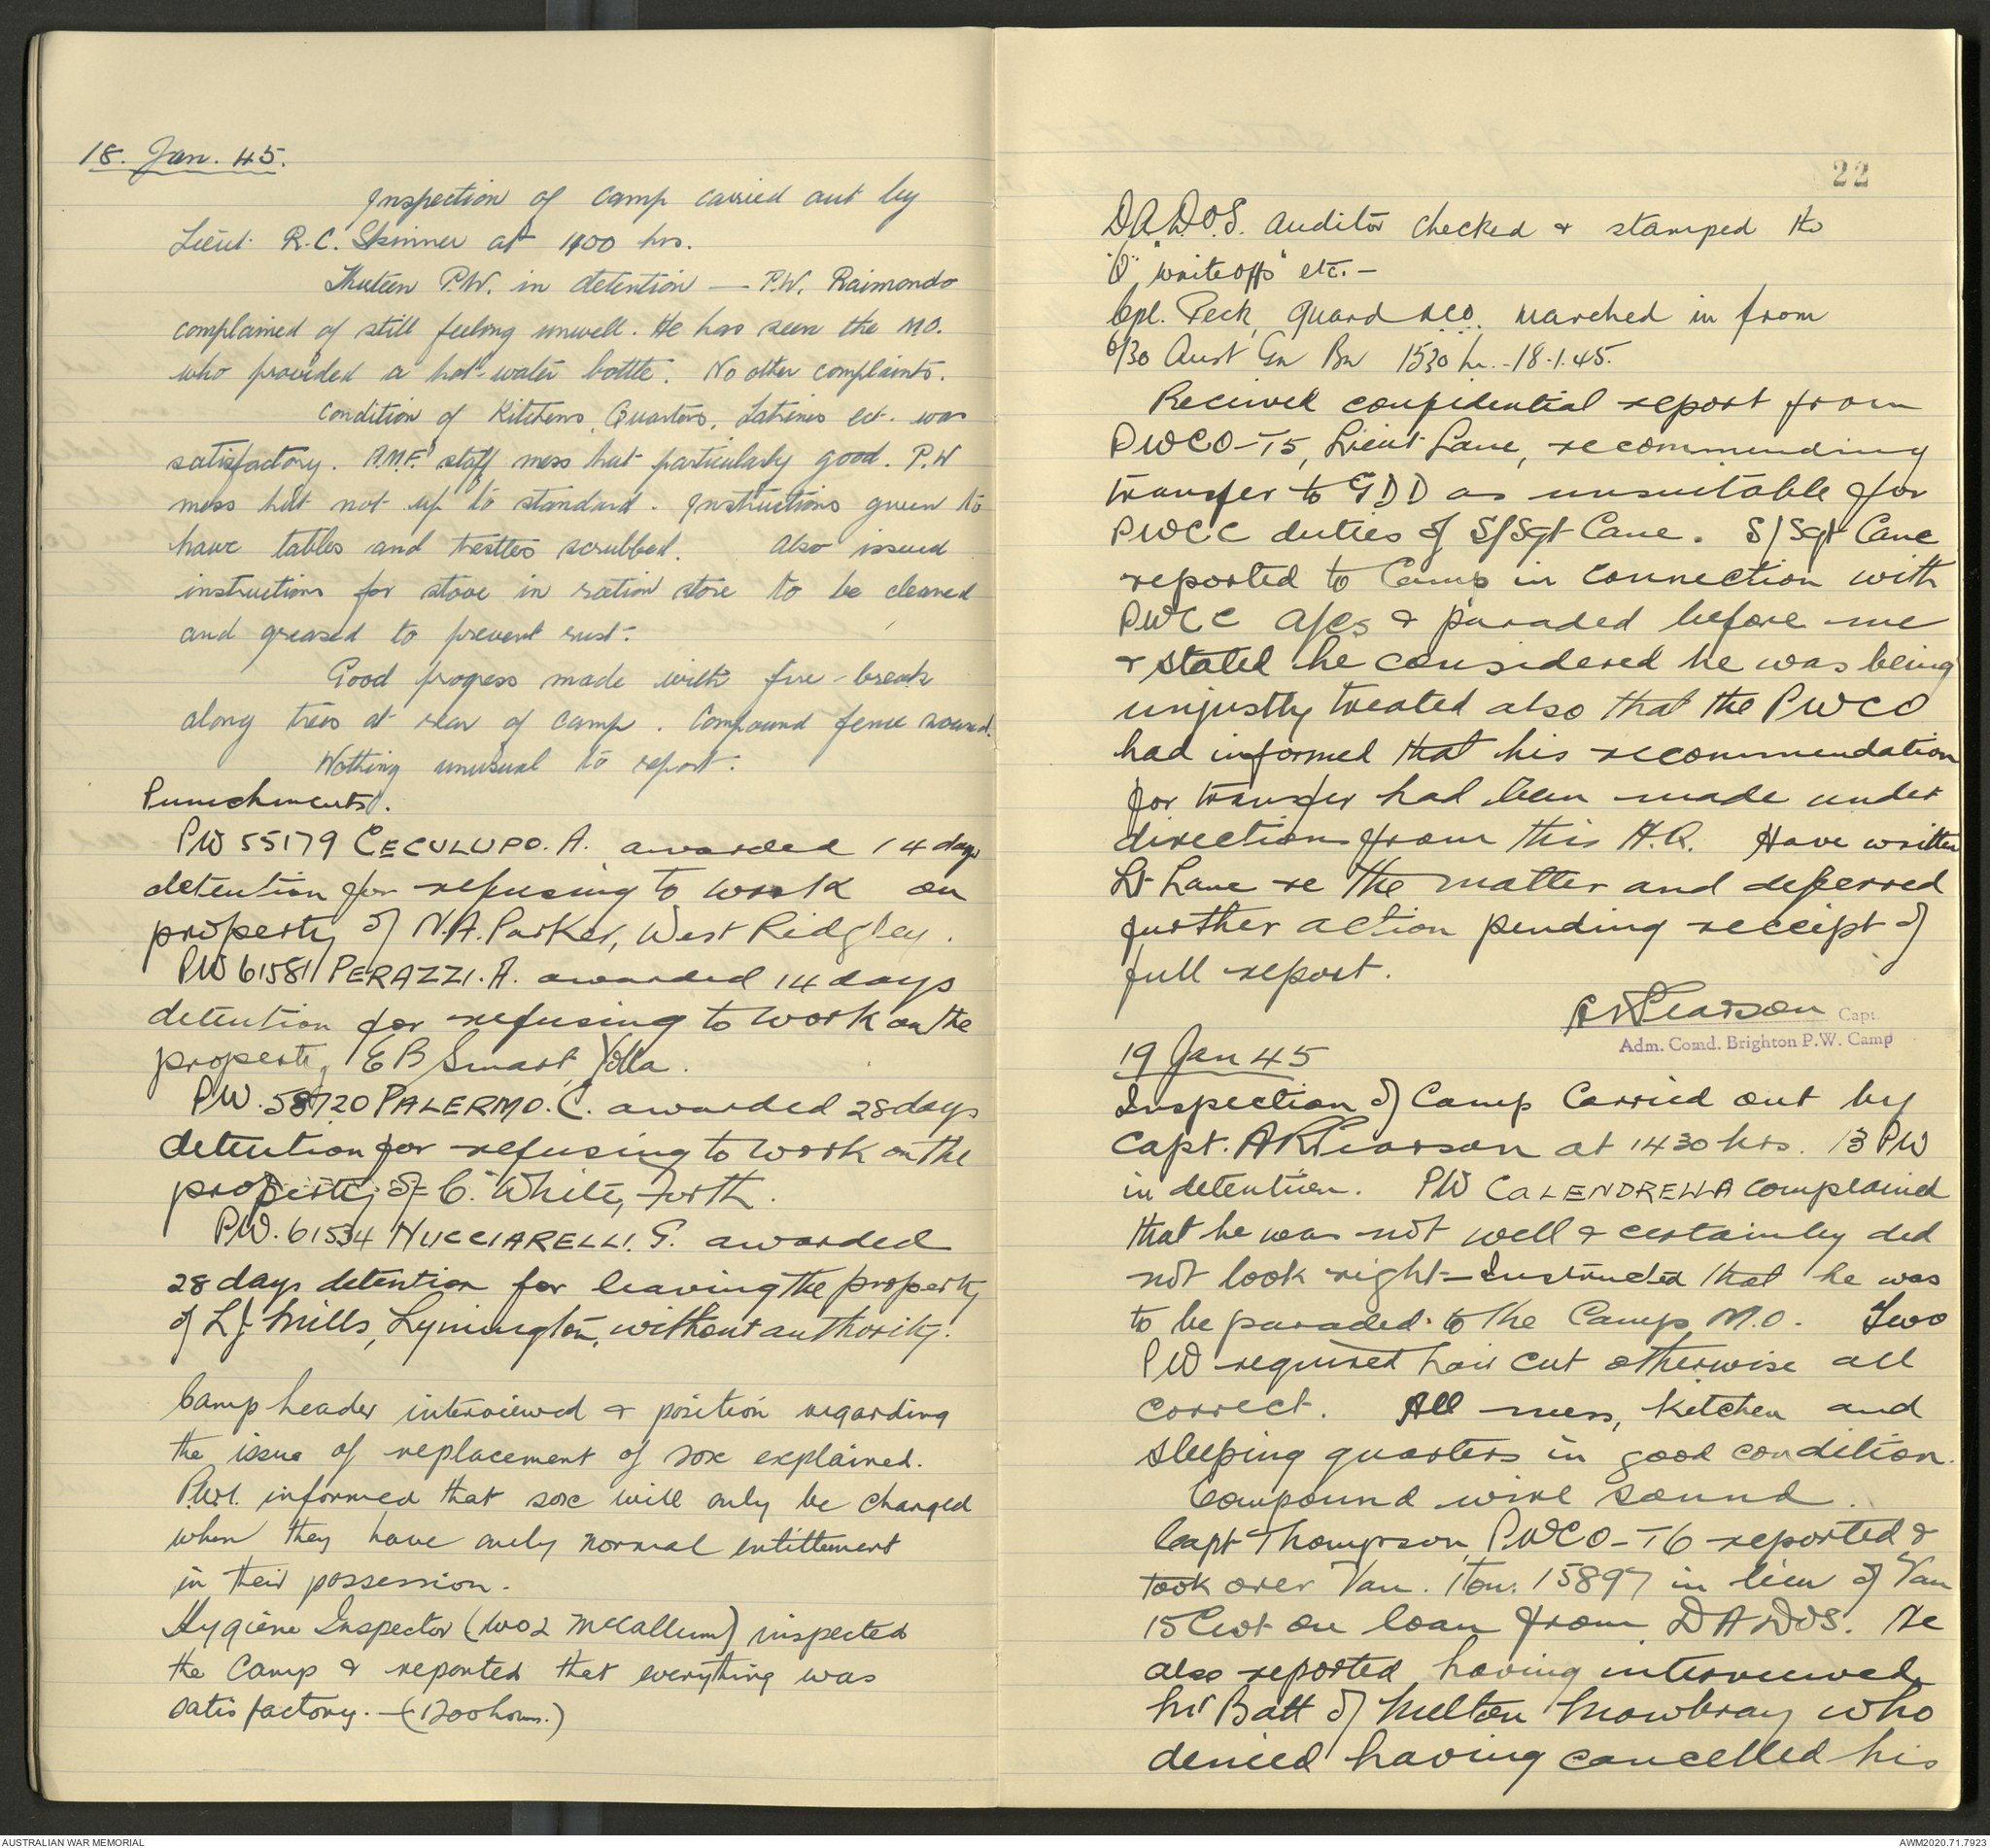 18. Jan. 45.
Inspection of camp carried out by
Lieut. R.C. Skinner at 1400 hrs.
Thirteen P.W. in detention — P.W. Raimondo
complained of still feeling unwell. He has seen the M.O.
who provided a hot-water bottle. No other complaints.
Condition of Kitchens, Quarters, Latrines ect. was
satisfactory. A.M.F. staff mess hut particularly good. P.W
mess hut not up to standard. Instructions given to
have tables and trestles scrubbed. Also issued
instructions for stove in ration store to be cleaned
and greased to prevent rust.
Good progress made with fire-break
along trees at rear of camp. Compound fence sound.
Nothing unusual to report.
Punishments.
PW 55179 CECULUPO. A. awarded 14 days
detention for refusing to work on
property of N.A. Parker, West Ridgley.
PW 61581 PERAZZI. A. awarded 14 days
detention for refusing to work on the
property, E B Smart, Yolla.
PW. 58720 PALERMO. C. awarded 28 days
detention for refusing to work on the
property of C. White, Forth.
PW. 61534 NUCCIARELLI. G. awarded
28 days detention for leaving the property
of L.J. Mills, Lymington, without authority.
Camp leader interviewed & position regarding
the issue of replacement of sox explained.
P.W.I. informed that sox will only be changed
when they have only normal entitlement
in their possession.
Hygiene Inspector (WO2 McCallum) inspected
the camp & reported that everything was
satisfactory. - (1200 hours.)
22
D.A.D.O.S. auditor checked & stamped the
"Q" writeoffs" etc. -
Cpl. Peck, guard NCO. marched in from
6/30 Aust Gn Bn 1530 hr. - 18.1.45.
Received confidential report from
PWCO-T5, Lieut Lane, recommending
transfer to GDD as unsuitable for
PWCC duties of S/Sgt Cane. S/Sgt Cane
reported to Camp in connection with
PWCC A/cs & paraded before me
& stated he considered he was being
unjustly treated also that the PWCO
had informed that his recommendation
for transfer had been made under
direction from this H.Q. Have written
Lt Lane re the matter and deferred
further action pending receipt of
full report.
ARPearson Capt.
Adm. Comd. Brighton P.W. Camp
19 Jan 45
Inspection of Camp Carried out by
Capt. A R Pearson at 1430 hrs. 13 PW
in detention. PW CALENDRELLA complained
that he was not well & certainley did
not look right - Instructed that he was
to be paraded to the Camp M.O. Two
PW required hair cut otherwise all
correct. All mess, kitchen and
sleeping quarters in good condition.
Compound wire sound.
Capt Thompson PWCO-T6 reported &
took over Van. 1 Ton. 15897 in lieu of Van
15 Cwt on loan from DADOS. He
also reported having interviewed
Mr Batt of Melton Mowbray who
denied having cancelled his
AUSTRALIAN WAR MEMORIAL
AWM2020.71.7923